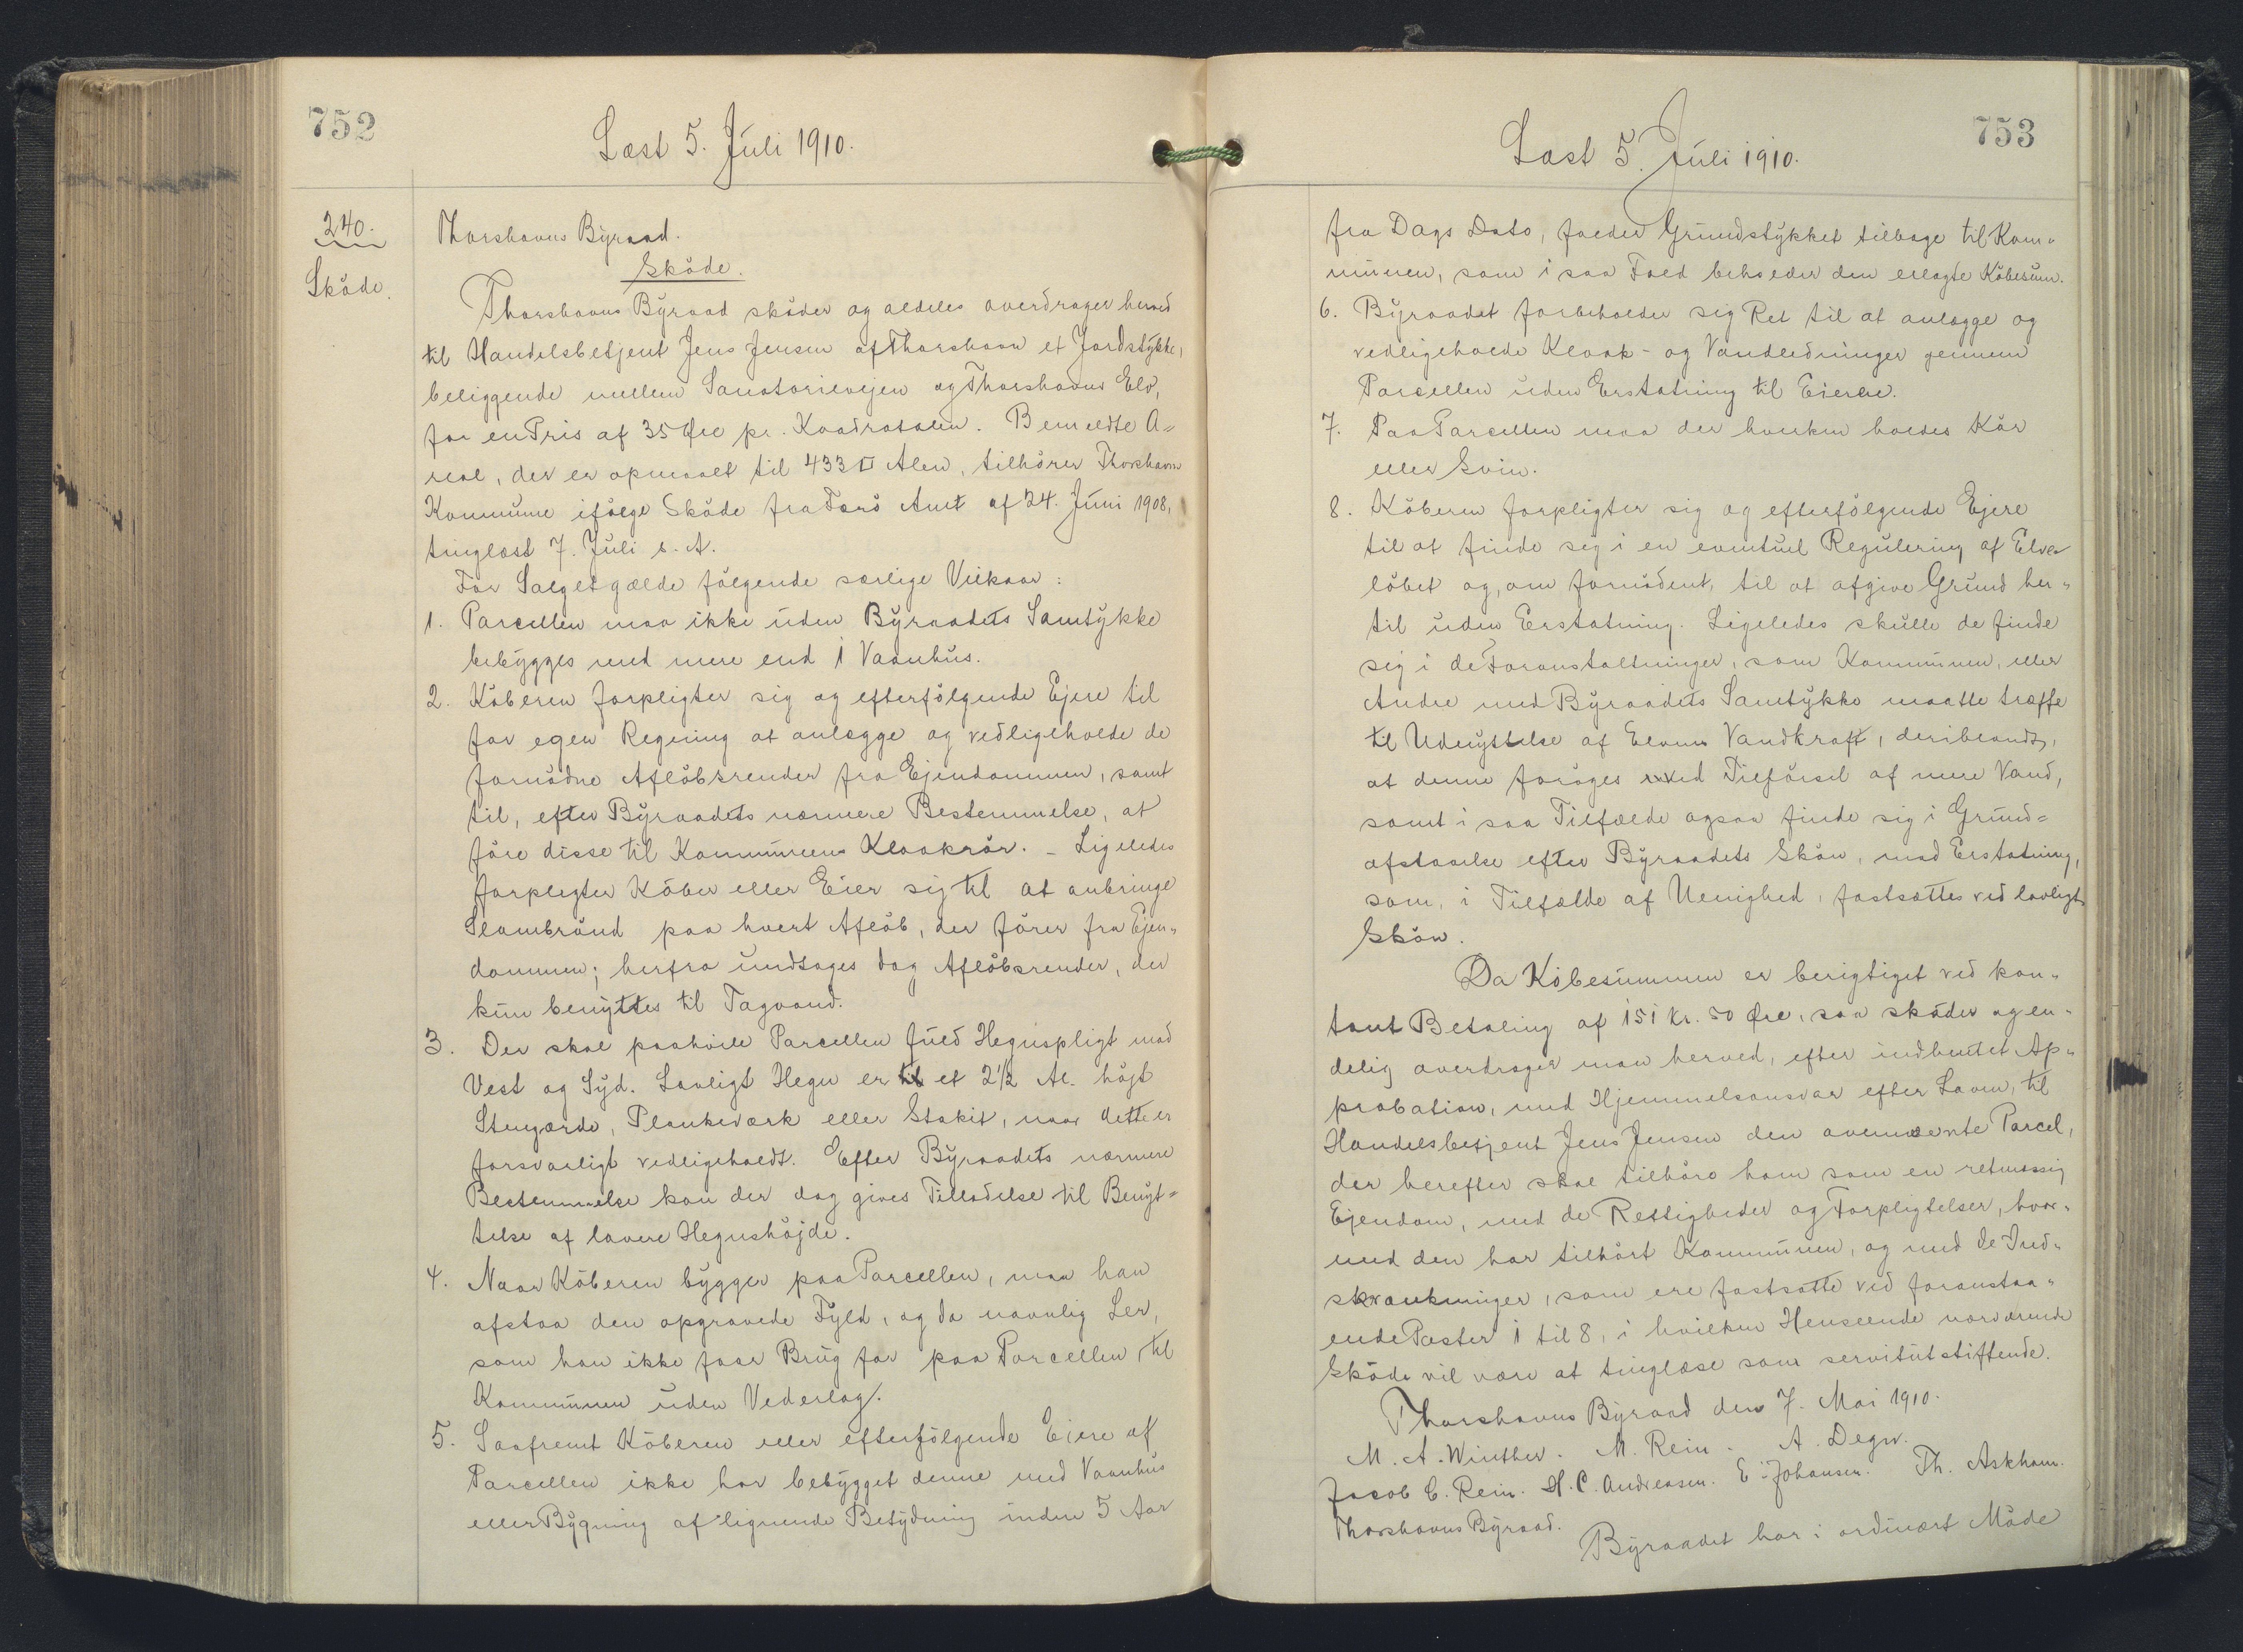 752
Læst 5. Juli 1910.
240.
Sköde.
Thorshavns Byraad.
Sköde.
Thorshavns Byraad sköder og aldeles overdrager herved
til Handelsbetjent Jens Jensen af Thorshavn et Jordstykke,
beliggende mellem Sanatorievejen og Thorshavns Elv,
for en Pris af 35 Øre pr. Kvadratalen. Bemeldte A=
real, der er opmaalt til 433 □ Alen, tilhörer Thorshavn
Kommune ifölge Sköde fra Færö Amt af 24. Juni 1908,
tinglæst 7. Juli s. A.
For Salget gælde fölgende særlige Vilkaar:
1. Parcellen maa ikke uden Byraadets Samtykke
bebygges med mere end 1 Vaanhus.
2. Köberen forpligter sig og efterfölgende Ejere til
for egen Regning at anlægge og vedligeholde de
fornödne Aflöbsrender fra Ejendommen, samt
til, efter Byraadets nærmere Bestemmelse, at
före disse til Kommunens Kloakrör. - Ligeledes
forpligter Köber eller Eier sig til at anbringe
Slambrönd paa hvert Aflöb, der förer fra Ejen=
dommen; herfra undtages dog Aflöbsrender, der
kun benyttes til Tagvand.
3. Der skal paahvile Parcellen fuld Hegnspligt mod
Vest og Syd. Lovligt Hegn er et 2½ Al. højt
Stengærde, Plankeværk eller Stakit, naar dette er
forsvarligt vedligeholdt. Efter Byraadets nærmere
Bestemmelse kan der dog gives Tilladelse til Benyt=
telse af lavere Hegnshöjde.
4. Naar Köberen bygger paa Parcellen, maa han
afstaa den opgravede Fyld, og da navnlig Ler,
som han ikke faar Brug for paa Parcellen, til
Kommunen uden Vederlag.
5. Saafremt Köberen eller efterfölgende Eiere af
Parcellen ikke har bebygget denne med Vaanhus
eller Bygning af lignende Betydning inden 5 Aar
753
Læst 5. Juli 1910.
fra Dags Dato, falder Grundstykket tilbage til Kom=
munen, som i saa Fald beholder den erlagte Köbesum.
6. Byraadet forbeholder sig Ret til at anlægge og
vedligeholde Kloak- og Vandledninger gennem
Parcellen uden Erstatning til Eieren.
7. Paa Parcellen maa der hverken holdes Kör
eller Svin.
8. Köberen forpligter sig og efterfölgende Ejere
til at finde sig i en eventuel Regulering af Elve
löbet og, om fornödent, til at afgive Grund her=
til uden Erstatning. Ligeledes skulle de finde
sig i de Foranstaltninger, som Kommunen, eller
Andre med Byraadets Samtykke maatte træffe
til Udnyttelse af Elvens Vandkraft, deriblandt,
at denne foröges ved Tilförsel af mere Vand,
samt i saa Tilfælde ogsaa finde sig i Grund=
afstaaelse efter Byraadets Skön, mod Erstatning,
som, i Tilfælde af Uenighed, fastsættes ved lovligt
Skön.
Da Köbesummen er berigtiget ved kon=
tant Betaling af 151 Kr. 50 Øre, saa sköder og en=
delig overdrager man herved, efter indhentet Ap=
probation, med Hjemmelsansvar efter Loven, til
Handelsbetjent Jens Jensen den ovennævnte Parcel,
der herefter skal tilhöre ham som en retmæssig
Ejendom, med de Rettigheder og Forpligtelser, hvor=
med den har tilhört Kommunen, og med de Ind=
skrænkninger, som ere fastsatte ved foranstaa=
ende Poster 1 til 8, i hvilken Henseende nærværende
Sköde vil være at tinglæse som servitutstiftende.
Thorshavns Byraad den 7. Mai 1910.
M. A. Winther. M. Rein. A. Degn.
Jacob C. Rein. H. C. Andreasen. E. Johansen. Th. Askham.
Thorshavns Byraad.
Byraadet har i ordinært Möde